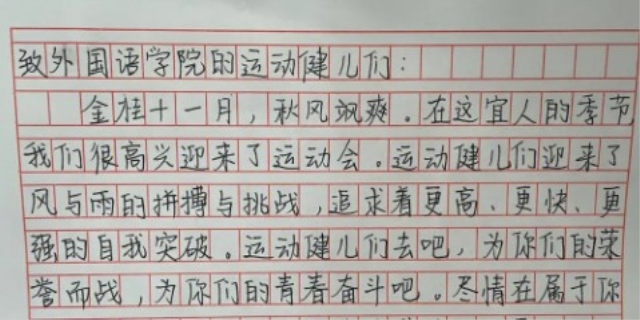 致外国语学院的运动健儿们：
金桂十一月，秋风飒爽。在这宜人的季节
我们很高兴迎来了运动会。运动健儿们迎来了
风与雨的拼搏与挑战，追求着更高、更快、更
强的自我突破。运动健儿们去吧，为你们的荣
誉而战，为你们的青春奋斗吧。尽情在属于你